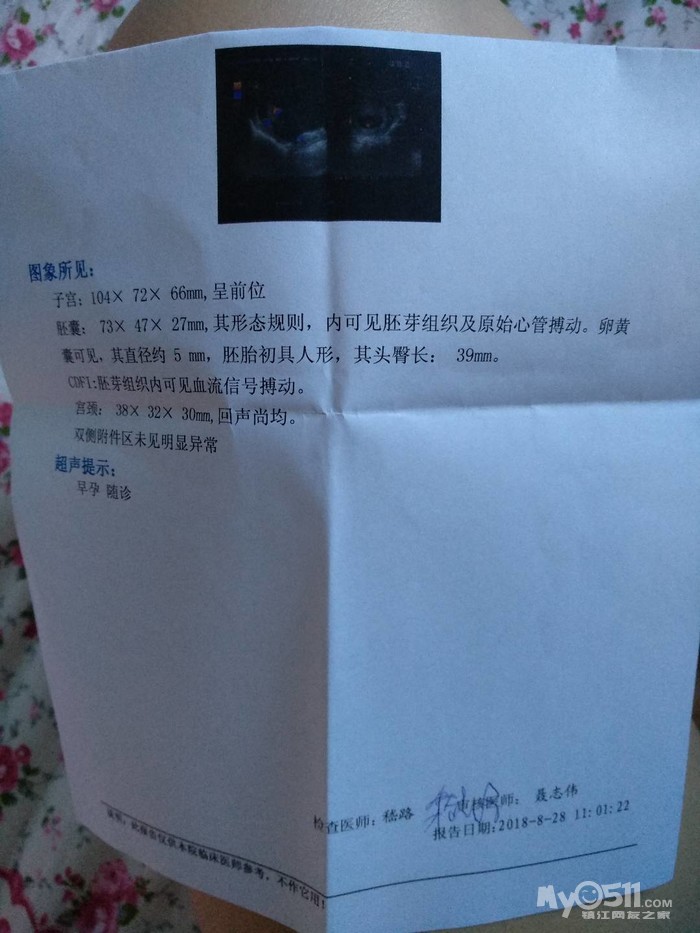 图象所见:
子宫: 104× 72× 66mm,呈前位
胚囊: 73× 47× 27mm,其形态规则，内可见胚芽组织及原始心管搏动。卵黄
囊可见，其直径约 5 mm，胚胎初具人形，其头臀长: 39mm。
CDFI:胚芽组织内可见血流信号搏动。
宫颈: 38× 32× 30mm,回声尚均。
双侧附件区未见明显异常
超声提示:
早孕 随诊
检查医师: 嵇路 审核医师: 聂志伟
报告日期:2018-8-28 11:01:22
说明: 此报告仅供本院临床医师参考，不作它用!
My0511.COM
镇江网友之家